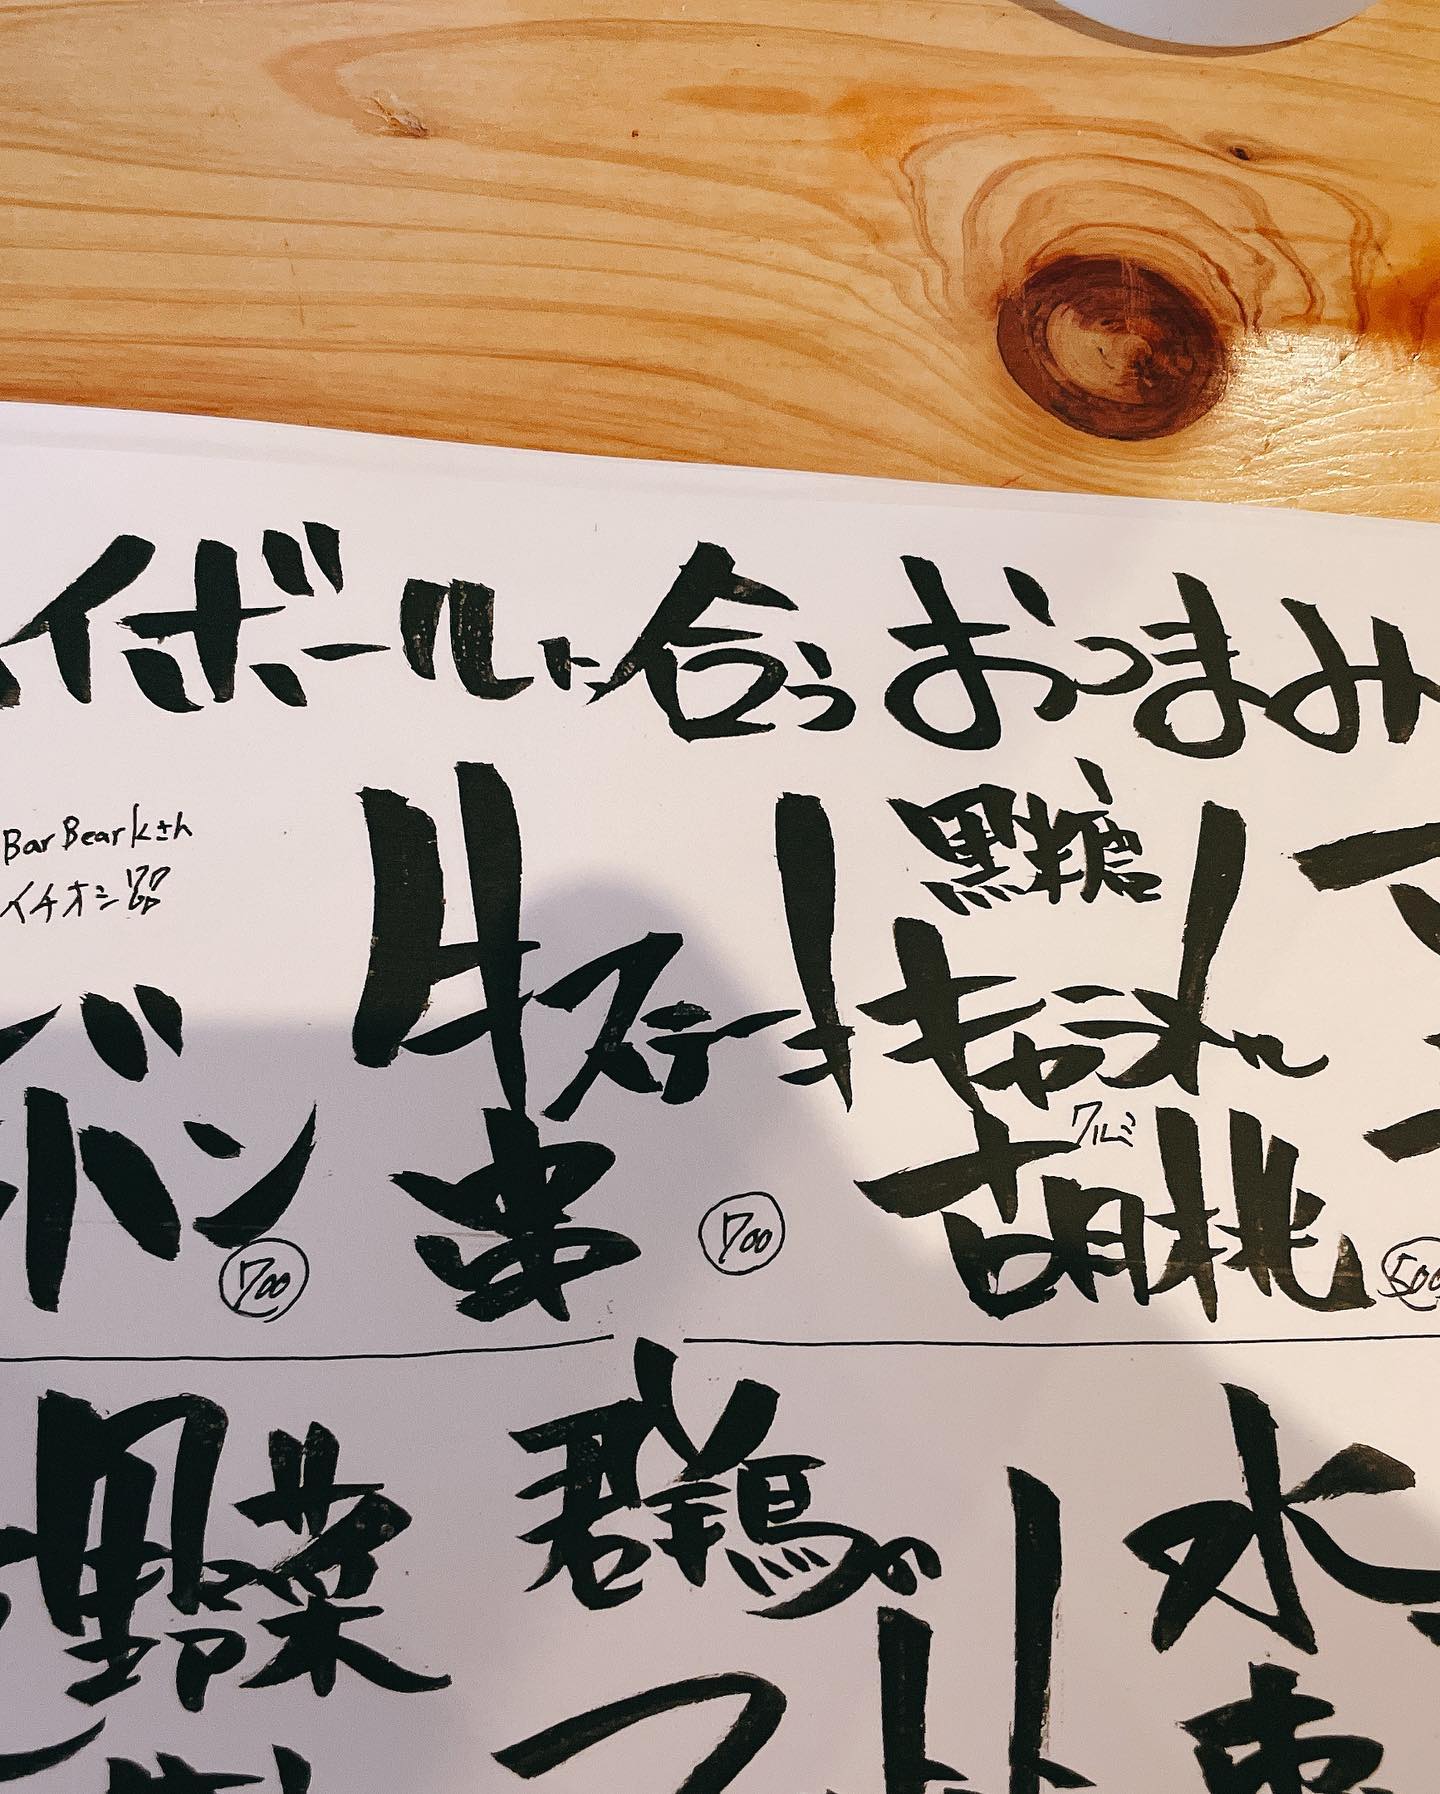 イボールに合うおつまみ
Bar Bearkさん
イチオシ品
バン
700
牛ステーキ
串
700
黒糖
キャラメル
クルミ
胡桃
500
野菜
群鶏の
水